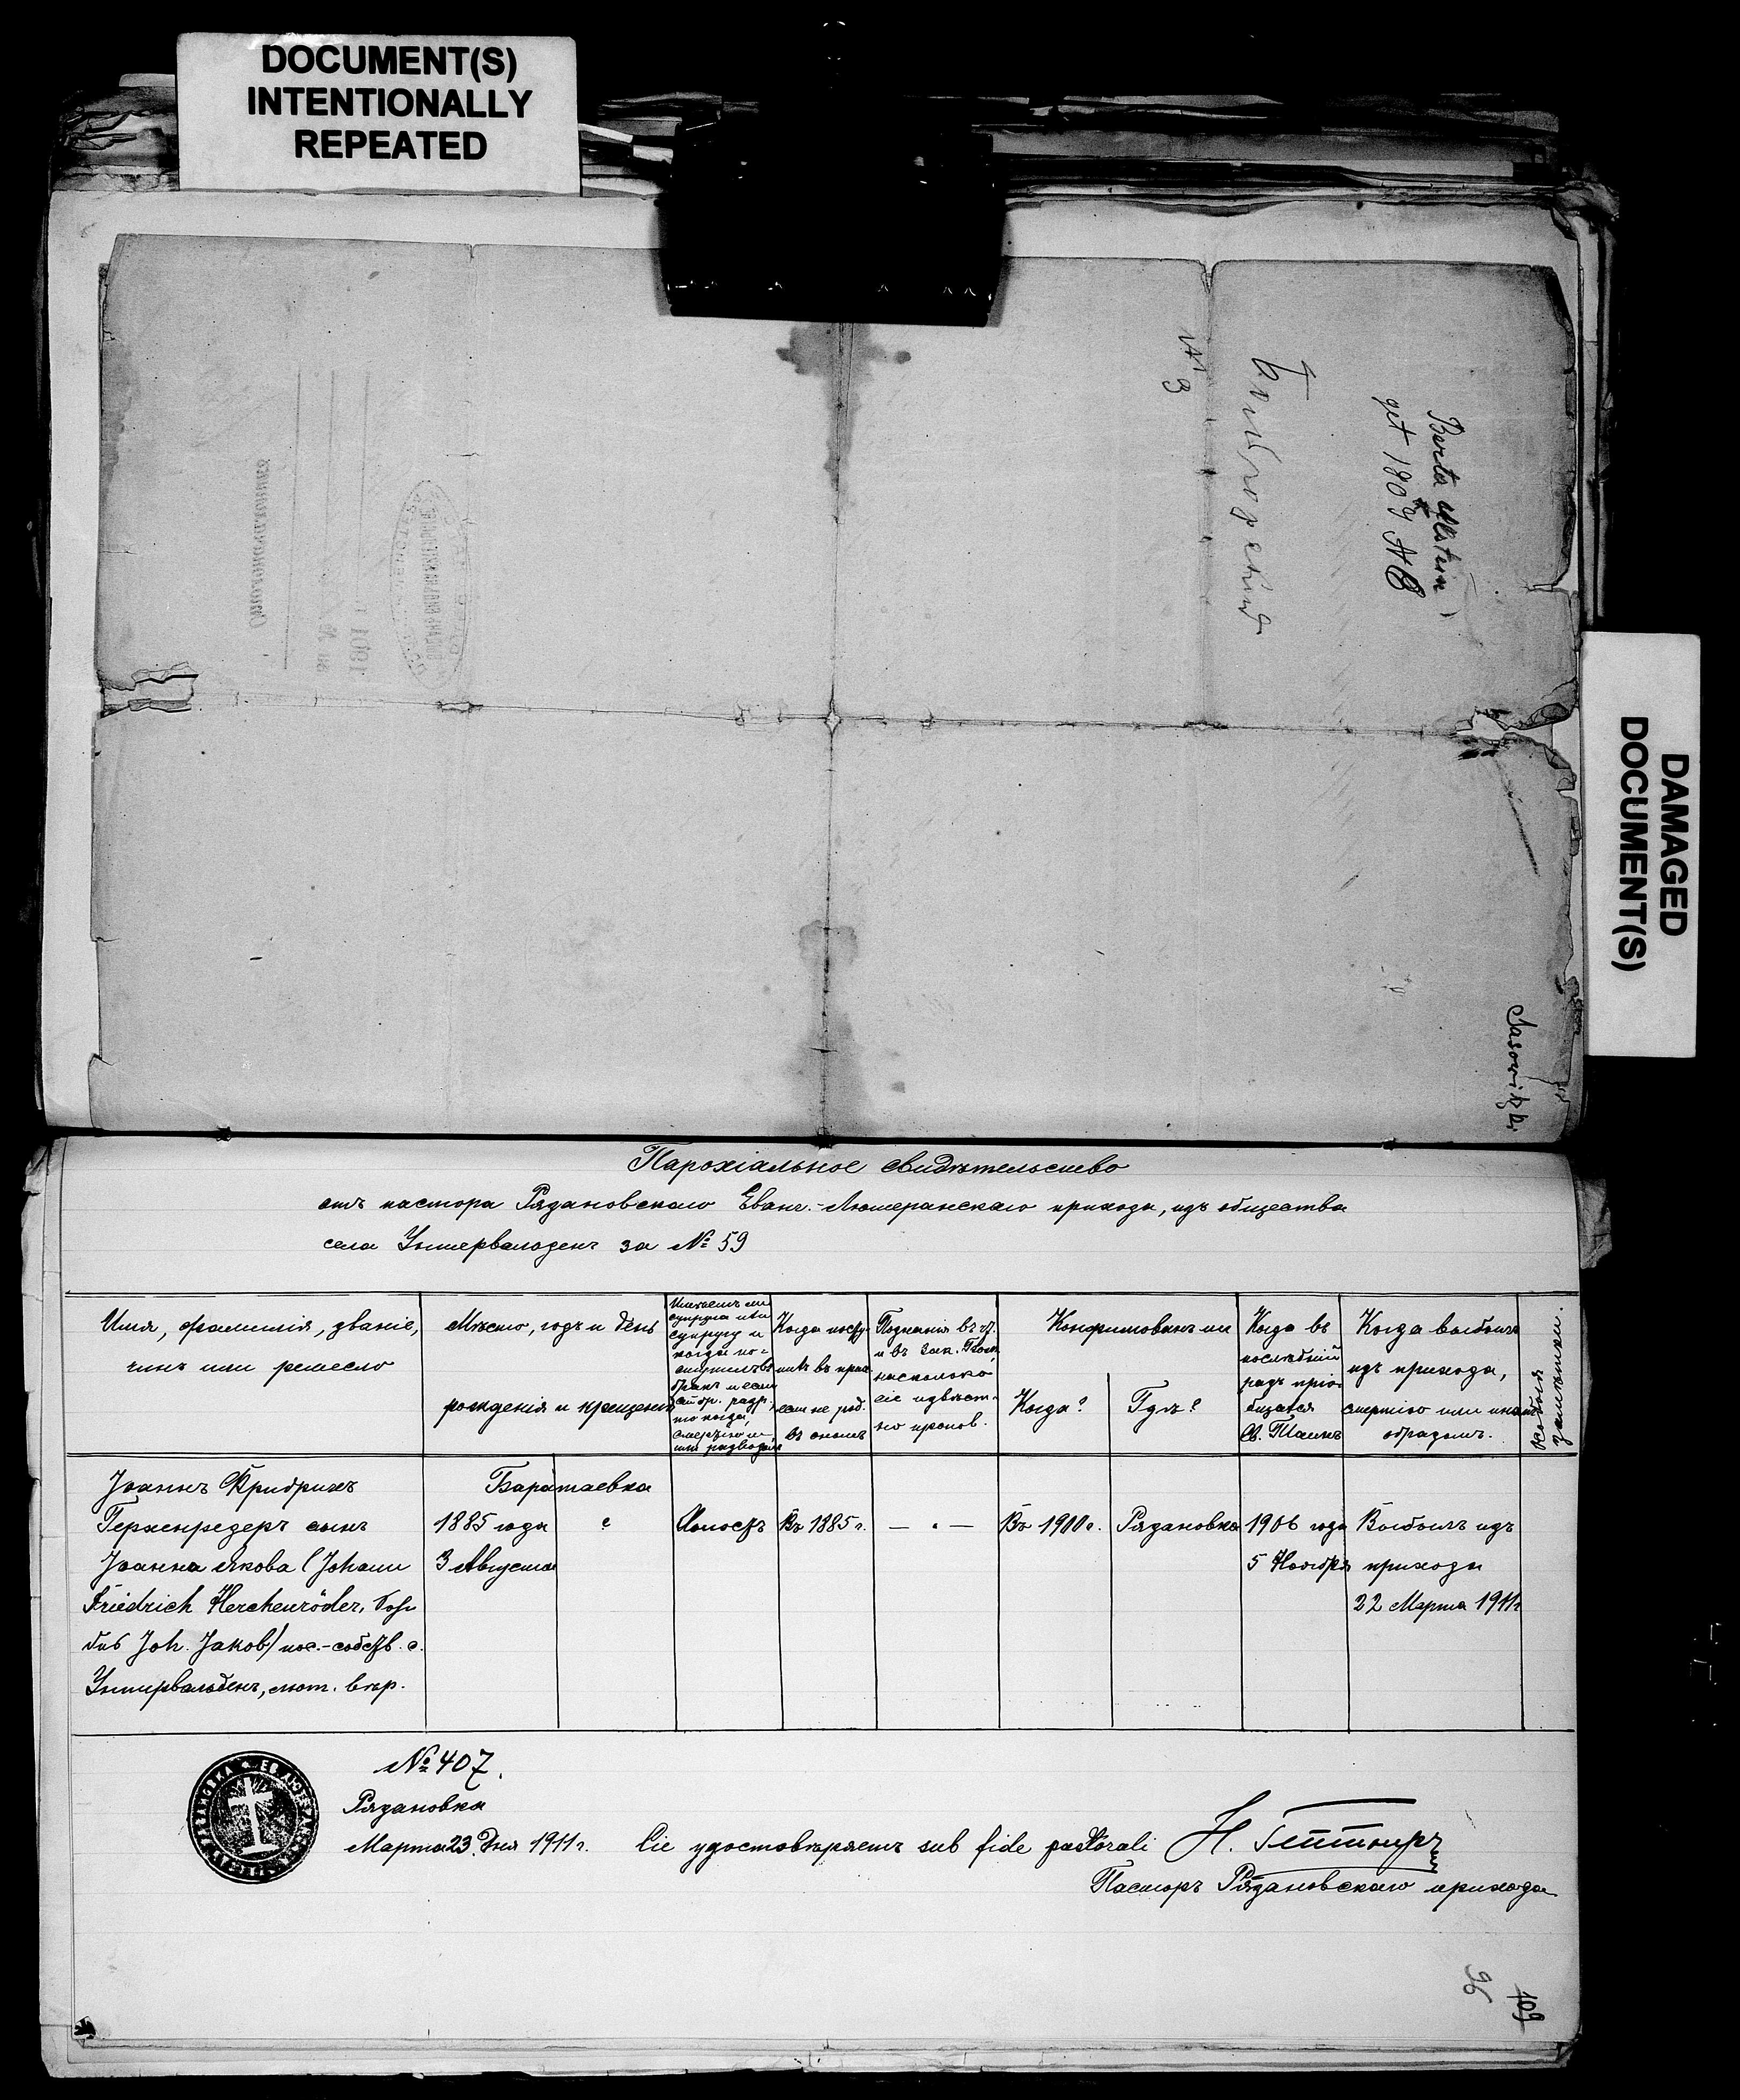 DOCUMENT(S)
INTENTIONALLY
REPEATED
DAMAGED
DOCUMENT(S)
Berta
get
№ 3
1901
Sasowitzki
Парохіальное свидѣтельство
отъ пастора Рязановскаго Еванг.-Лютеранскаго прихода, изъ общества
села Унтервальденъ за № 59
Имя, фамилія, званіе,
чинъ или ремесло
Мѣсто, годъ и день
рожденія и крещенія
Имѣетъ ли
супруга или
супругу и
когда
бракъ и если
то когда,
смертью
или разводомъ
Когда посту-
пилъ въ прих.
если не род.
въ ономъ
Познанія въ чт.
и въ Зак. Бож.
насколько
сіе извѣст-
но
Конфирмованъ ли
Когда?
Гдѣ?
Когда въ
послѣдній
разъ пріо-
бщался
Св. Таинъ
Когда выбылъ
изъ прихода,
смертію или инымъ
образомъ.
Особыя
замѣтки.
Іоаннъ Фридрихъ
Герхенредеръ сынъ
Іоанна Якова (Johann
Friedrich Herchenröder, Sohn
des Joh. Jakob) пос.-собств. с.
Унтервальденъ, лют. вѣр.
Баратаевка
1885 года
3 Августа
?
Холостъ
Въ 1885 г.
— „ —
Въ 1900 г.
Рязановка
1906 года
5 Ноября
Выбылъ изъ
прихода
22 Марта 1911 г.
№ 407.
Рязановка
Марта 23 Дня 1911 г. Сіе удостовѣряетъ sub fide pastorali
Пасторъ Рязановскаго прихода
96
109